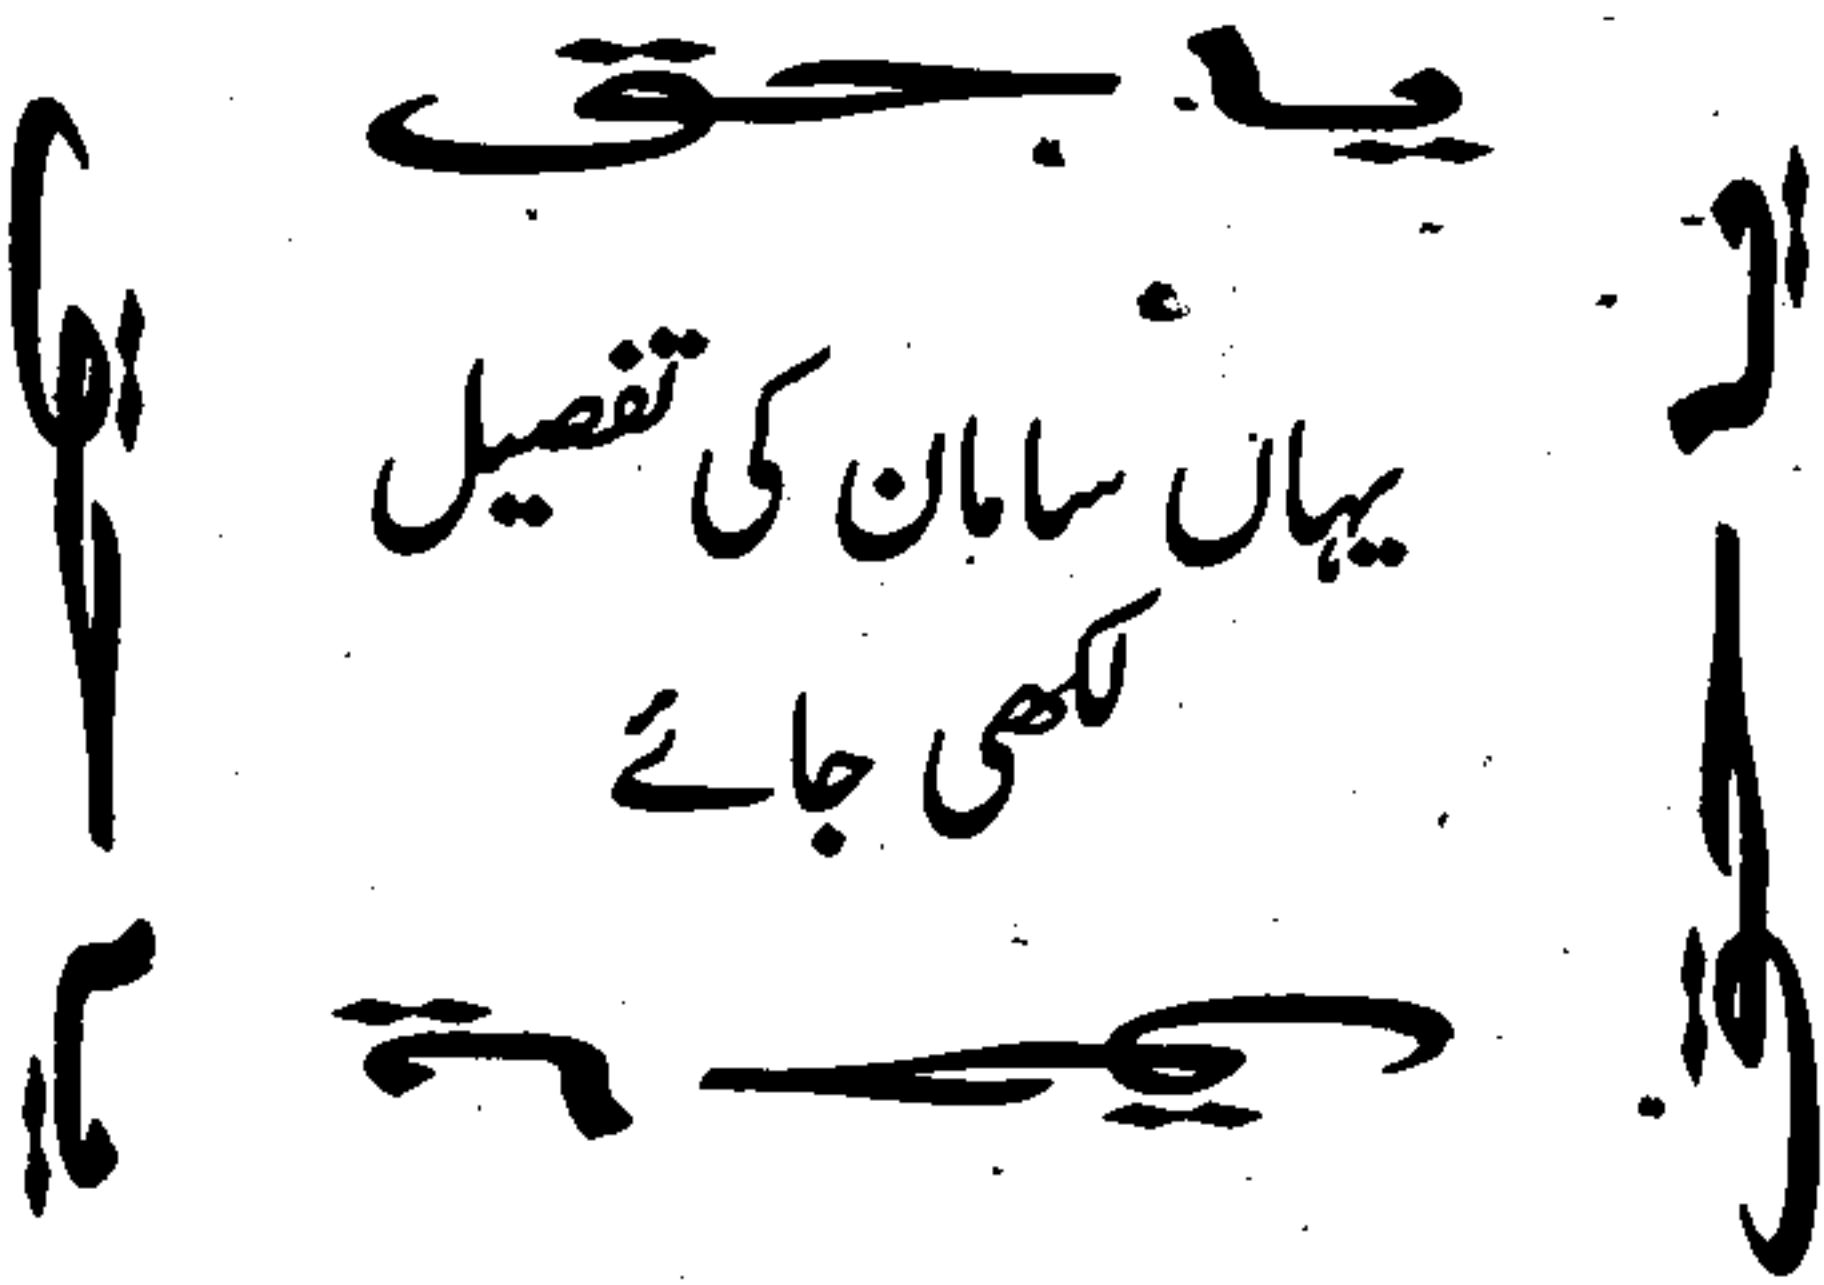 یا حق
یہاں سامان کی تفصیل
لکھی جائے